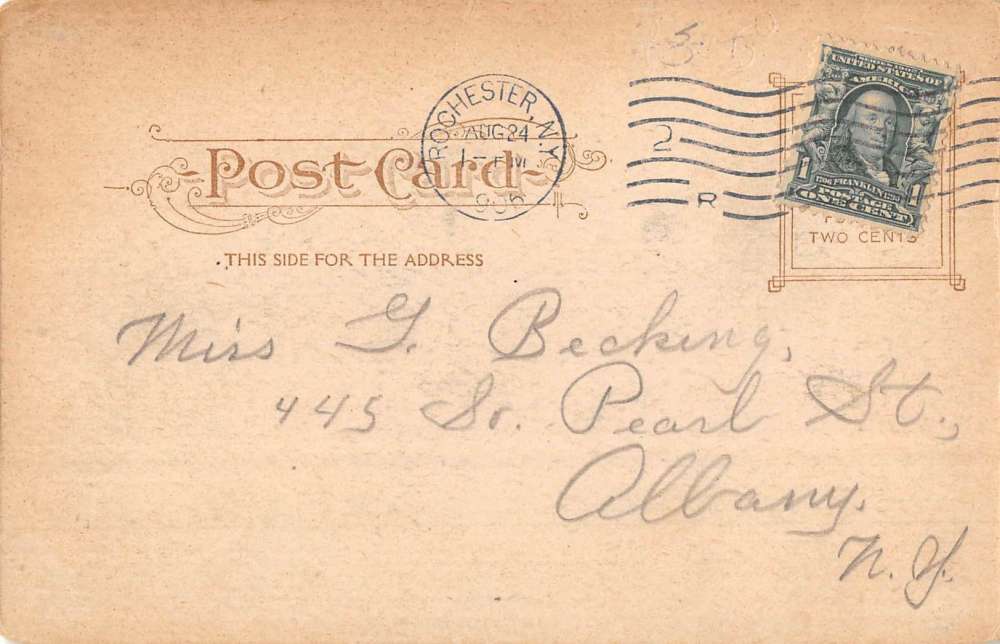 ROCHESTER, N.Y.
AUG 24
1 - PM
2
R
UNITED STATES OF
AMERICA
1 FRANKLIN 1
POSTAGE
ONE CENT
TWO CENTS
Post Card
THIS SIDE FOR THE ADDRESS
Miss G. Becking,
445 So. Pearl St.,
Albany.
N.Y.